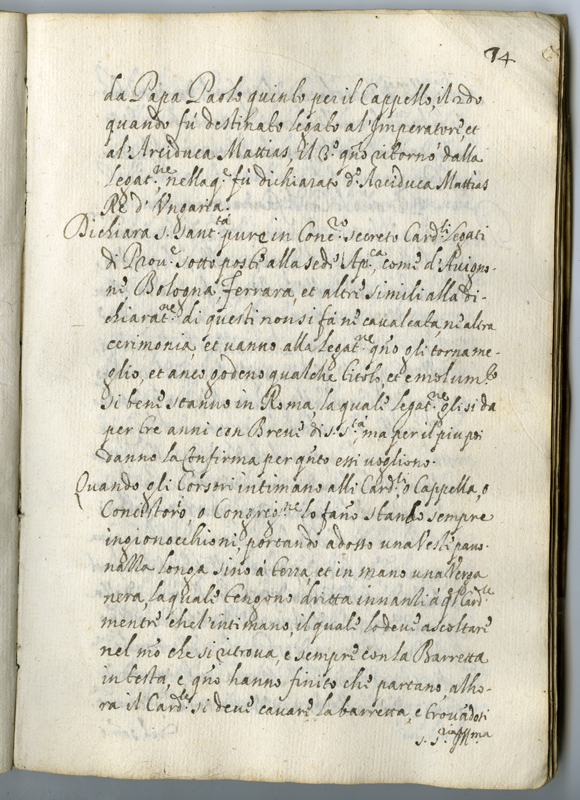 74
da Papa Paolo quinto per il Cappello, il 2do
quando fù destinato legato al'Imperatore et
al' Arciduca Mattias, Il 3.º qño ritornò dalla
Legat.ne nella q.e fù dichiarato d.o Arciduca Mattias
Rè d' Vngaria.
Dichiara s. Sant.tà pure in Conc.ro secreto Card.li legati
di Prou.e sotto posti alla sede Ap.ca come d'Auigno-
ne Bologna, Ferrara, et altre simili alla di-
chiarat.ne di questi non si fà ne caualcata ne altra
cerimonia, et uanno alla legat.ne qño gli torna me-
glio, et anco godeno qualche titolo, et emolum.to
si bene stanno in Roma, la quale legat.ne gli si da
per tre anni con Breue di s. s.tà, ma per il piu poi
danno la Confirma per qñto essi uogliono.
Quando gli Corsori intimano alli Card.li o Cappella, o
Concistoro, o Congreg.ne lo fano stando sempre
ingionocchioni portando adosso una Veste pauo-
nazza longa sino à terra, et in mano una Verga
nera, la quale tengono dritta innanti à q.l Card.le
mentre che l'intimano, il quale lo deue ascoltare
nel mõ che si ritroua, e sempre con la Barretta
in testa, e qño hanno finito che partano, alho-
ra il Card.le si deue cauare la barretta, e trouãdosi
s. s.ria Ill.ma